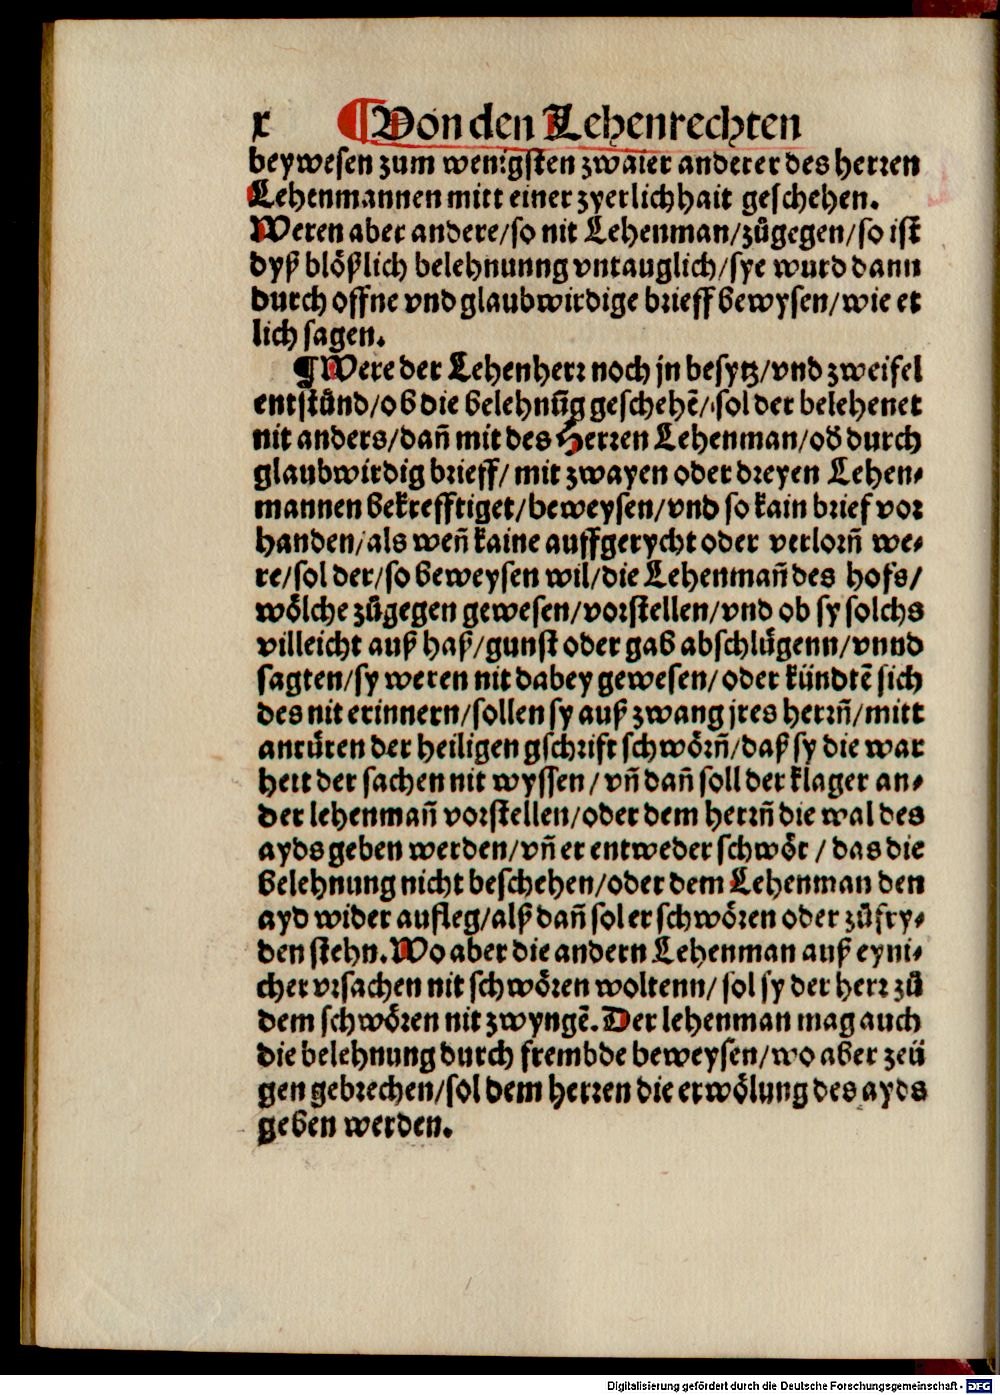 x ¶Von den Lehenrechten
beywesen zum wenigsten zwaier anderer des herren
Lehenmannen mitt einer zyerlichhait geschehen.
Weren aber andere/so nit Lehenman/zůgegen/so ist
dyß blößlich belehnunng vntauglich/sye wurd dann
durch offne vnd glaubwirdige brieff bewysen/wie et
lich sagen.
¶Were der Lehenherr noch jn besytz/vnd zweifel
entstůnd/ob die belehnūg geschehē/sol der belehenet
nit anders/dañ mit des Herren Lehenman/od durch
glaubwirdig brieff/ mit zwayen oder dreyen Lehen⸗
mannen bekrefftiget/beweysen/vnd so kain brief vor
handen/als weñ kaine auffgerycht oder verlorñ we⸗
re/sol der/so beweysen wil/die Lehenmañ des hofs/
wölche zůgegen gewesen/vorstellen/vnd ob sy solchs
villeicht auß haß/gunst oder gab abschlůgenn/vnnd
sagten/sy weren nit dabey gewesen/oder kündtē sich
des nit erinnern/sollen sy auß zwang jres herrñ/mitt
anrüren der heiligen gschrift schwörñ/daß sy die war
heit der sachen nit wyssen/vñ dañ soll der klager an⸗
der lehenmañ vorstellen/oder dem herrñ die wal des
ayds geben werden/vñ er entweder schwör/das die
belehnung nicht beschehen/oder dem Lehenman den
ayd wider aufleg/alß dañ sol er schwören oder zůfry⸗
den stehn.Wo aber die andern Lehenman auß eyni⸗
cher vrsachen nit schwören woltenn/ sol sy der herr zů
dem schwören nit zwyngē.Der lehenman mag auch
die belehnung durch frembde beweysen/wo aber zeü
gen gebrechen/sol dem herren die erwölung des ayds
geben werden.
Digitalisierung gefördert durch die Deutsche Forschungsgemeinschaft - DFG